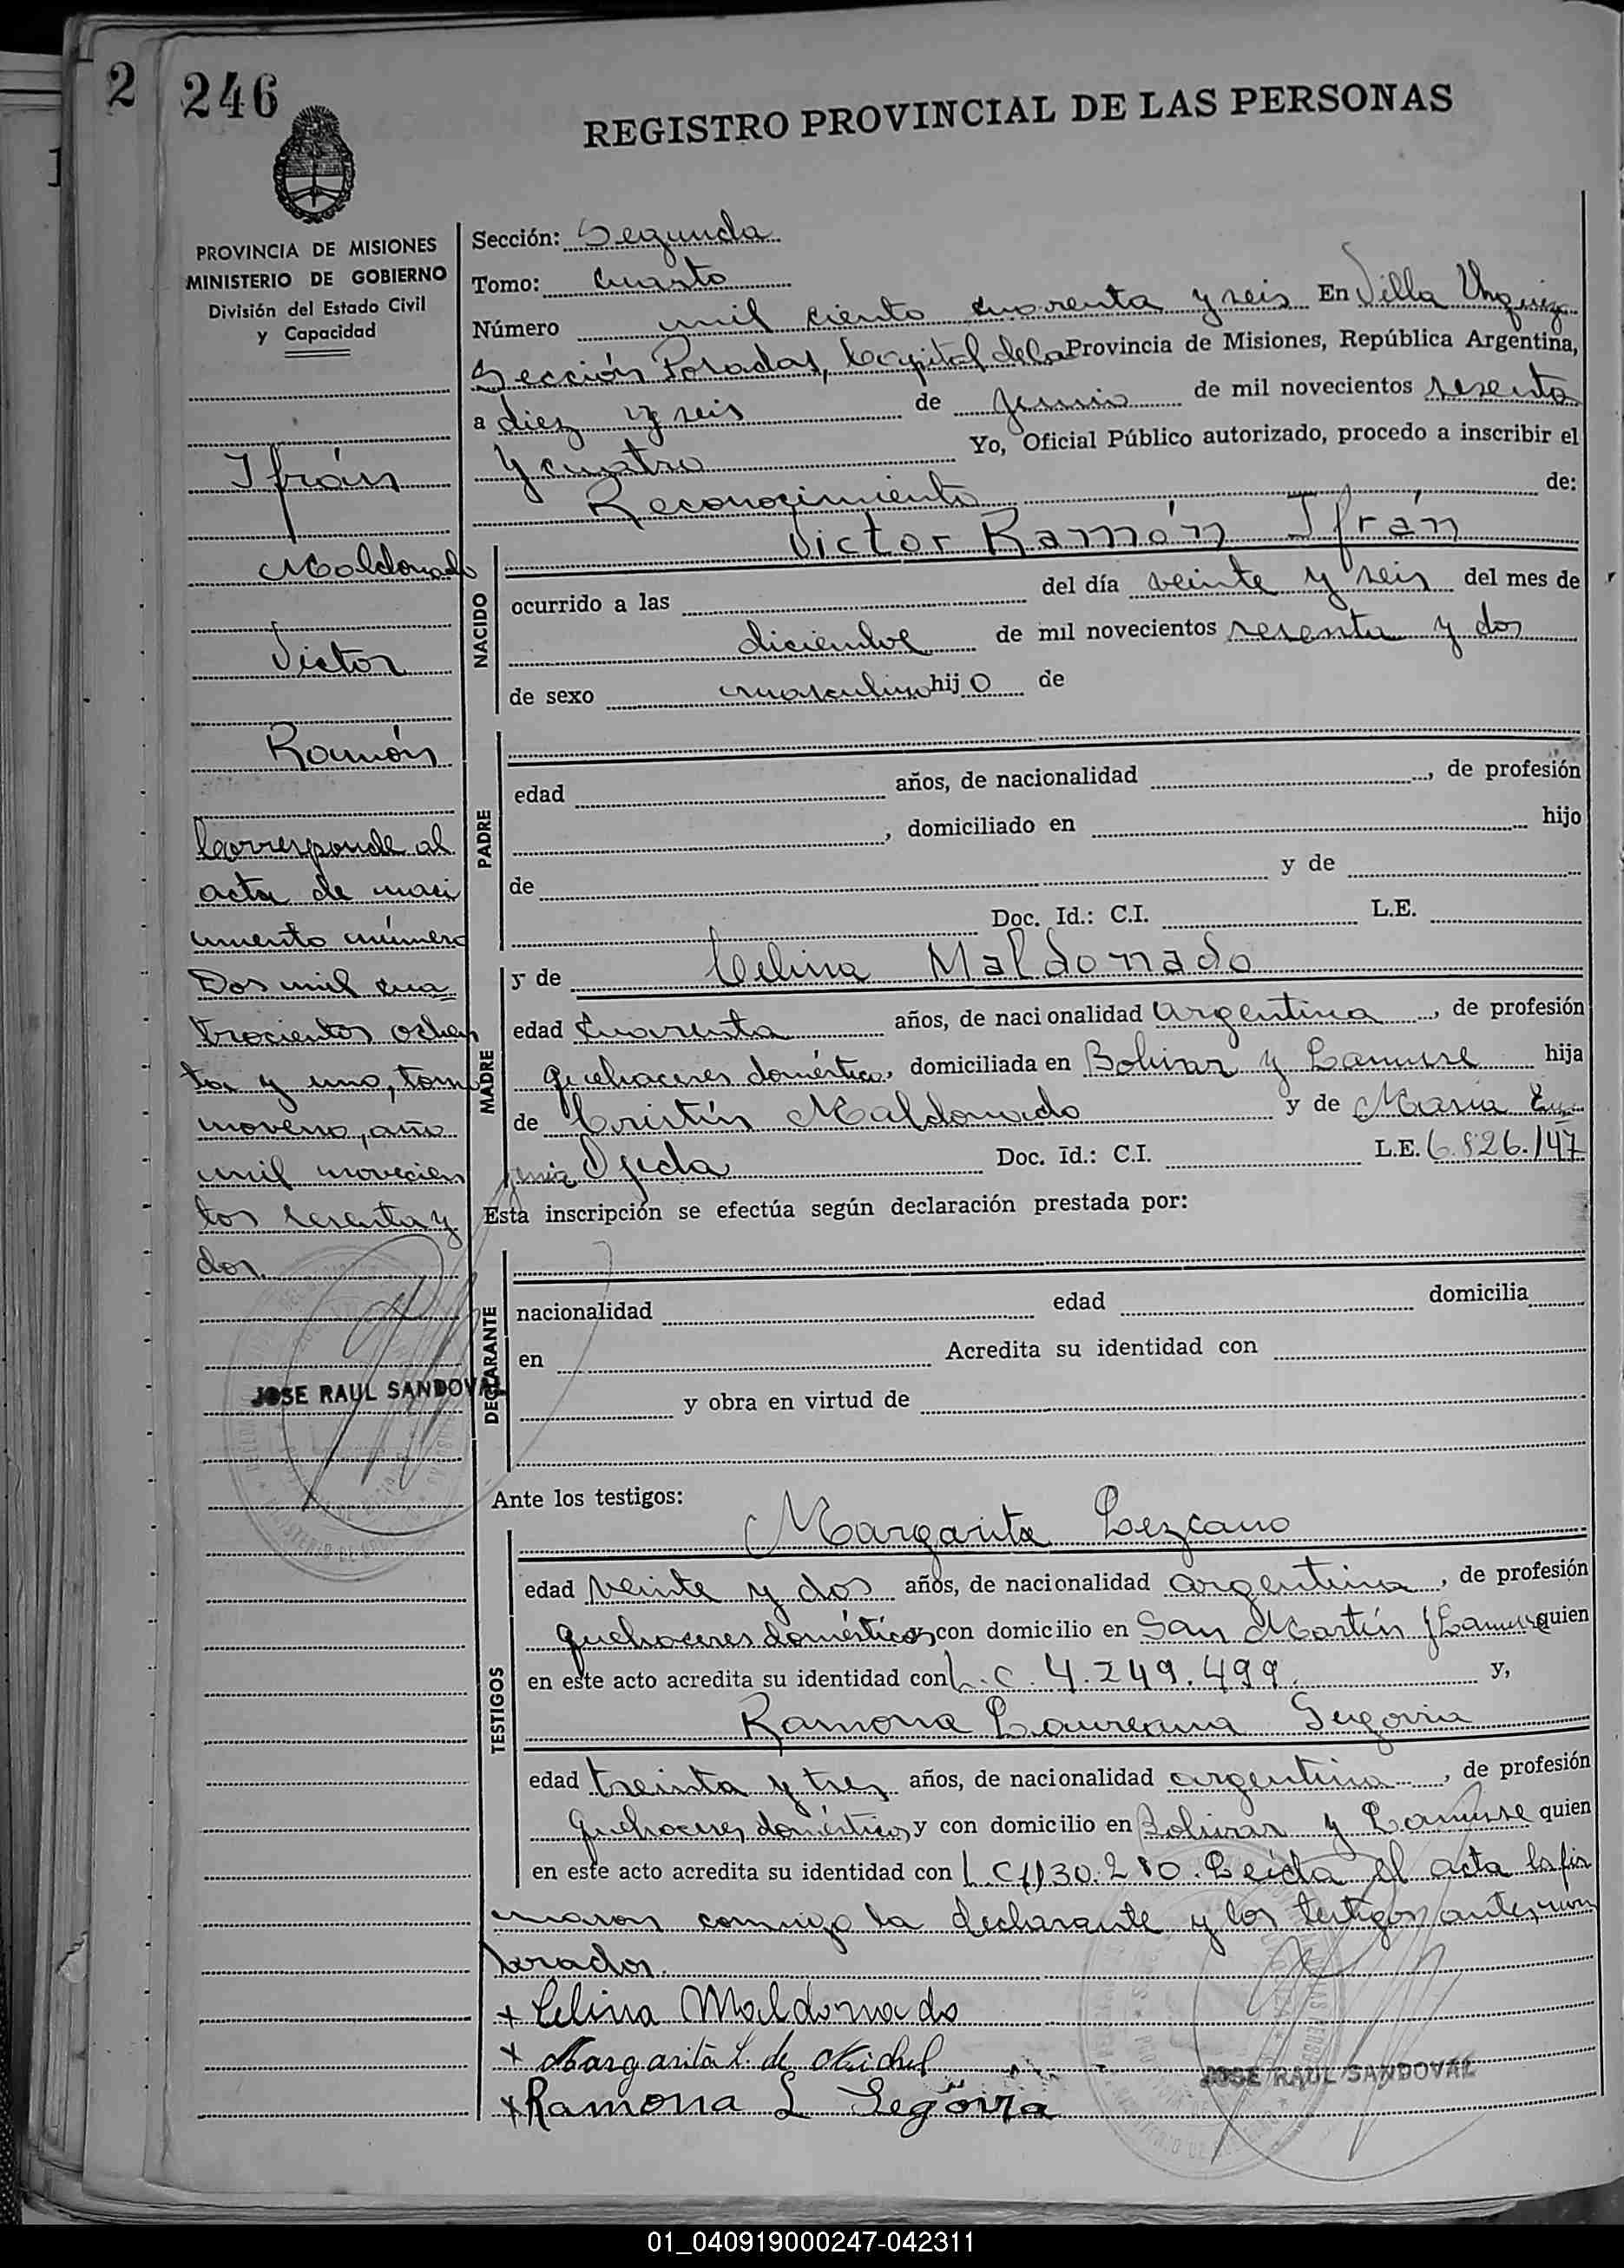 2 246
REGISTRO PROVINCIAL DE LAS PERSONAS
PROVINCIA DE MISIONES
MINISTERIO DE GOBIERNO
División del Estado Civil
y Capacidad
Ifrán
Maldonado
Victor
Ramón
Corresponde al
acta de naci
miento número
Dos mil cua
trocientos ochen
ta y uno, tomo
noveno, año
mil novecien
tos sesenta y
dos.
JOSE RAUL SANDOVAL
Sección: Segunda
Tomo: Cuarto
Número mil ciento cuarenta y seis En Villa Urquiza
Sección Posadas, Capital de la Provincia de Misiones, República Argentina,
a diez y seis de Junio de mil novecientos sesenta
y cuatro Yo, Oficial Público autorizado, procedo a inscribir el
Reconocimiento de:
Victor Ramón Ifrán
NACIDO
ocurrido a las del día veinte y seis del mes de
diciembre de mil novecientos sesenta y dos
de sexo masculino hijo de
PADRE
edad años, de nacionalidad , de profesión
, domiciliado en hijo
de y de
Doc. Id.: C.I. L.E.
MADRE
y de Celina Maldonado
edad Cuarenta años, de nacionalidad argentina, de profesión
quehaceres domésticos, domiciliada en Bolivar y Lanusse hija
de Cristín Maldonado y de María Eu
genia Ojeda Doc. Id.: C.I. L.E. 6.826.147
Esta inscripción se efectúa según declaración prestada por:
DECLARANTE
nacionalidad edad domicilia
en Acredita su identidad con
y obra en virtud de
Ante los testigos:
TESTIGOS
Margarita Lezcano
edad veinte y dos años, de nacionalidad argentina, de profesión
quehaceres domésticos y con domicilio en San Martín y Lanusse quien
en este acto acredita su identidad con L.C. 4.249.499. y,
Ramona Laureana Segovia
edad treinta y tres años, de nacionalidad argentina, de profesión
quehaceres domésticos y con domicilio en Bolivar y Lanusse quien
en este acto acredita su identidad con L.C. 30.280. Leída el acta la fir
maron conmigo la declarante y los testigos antes nom
brados.
+ Celina Maldonado
+ Margarita L. de
+ Ramona L Segovia
JOSE RAUL SANDOVAL
01_040919000247-042311